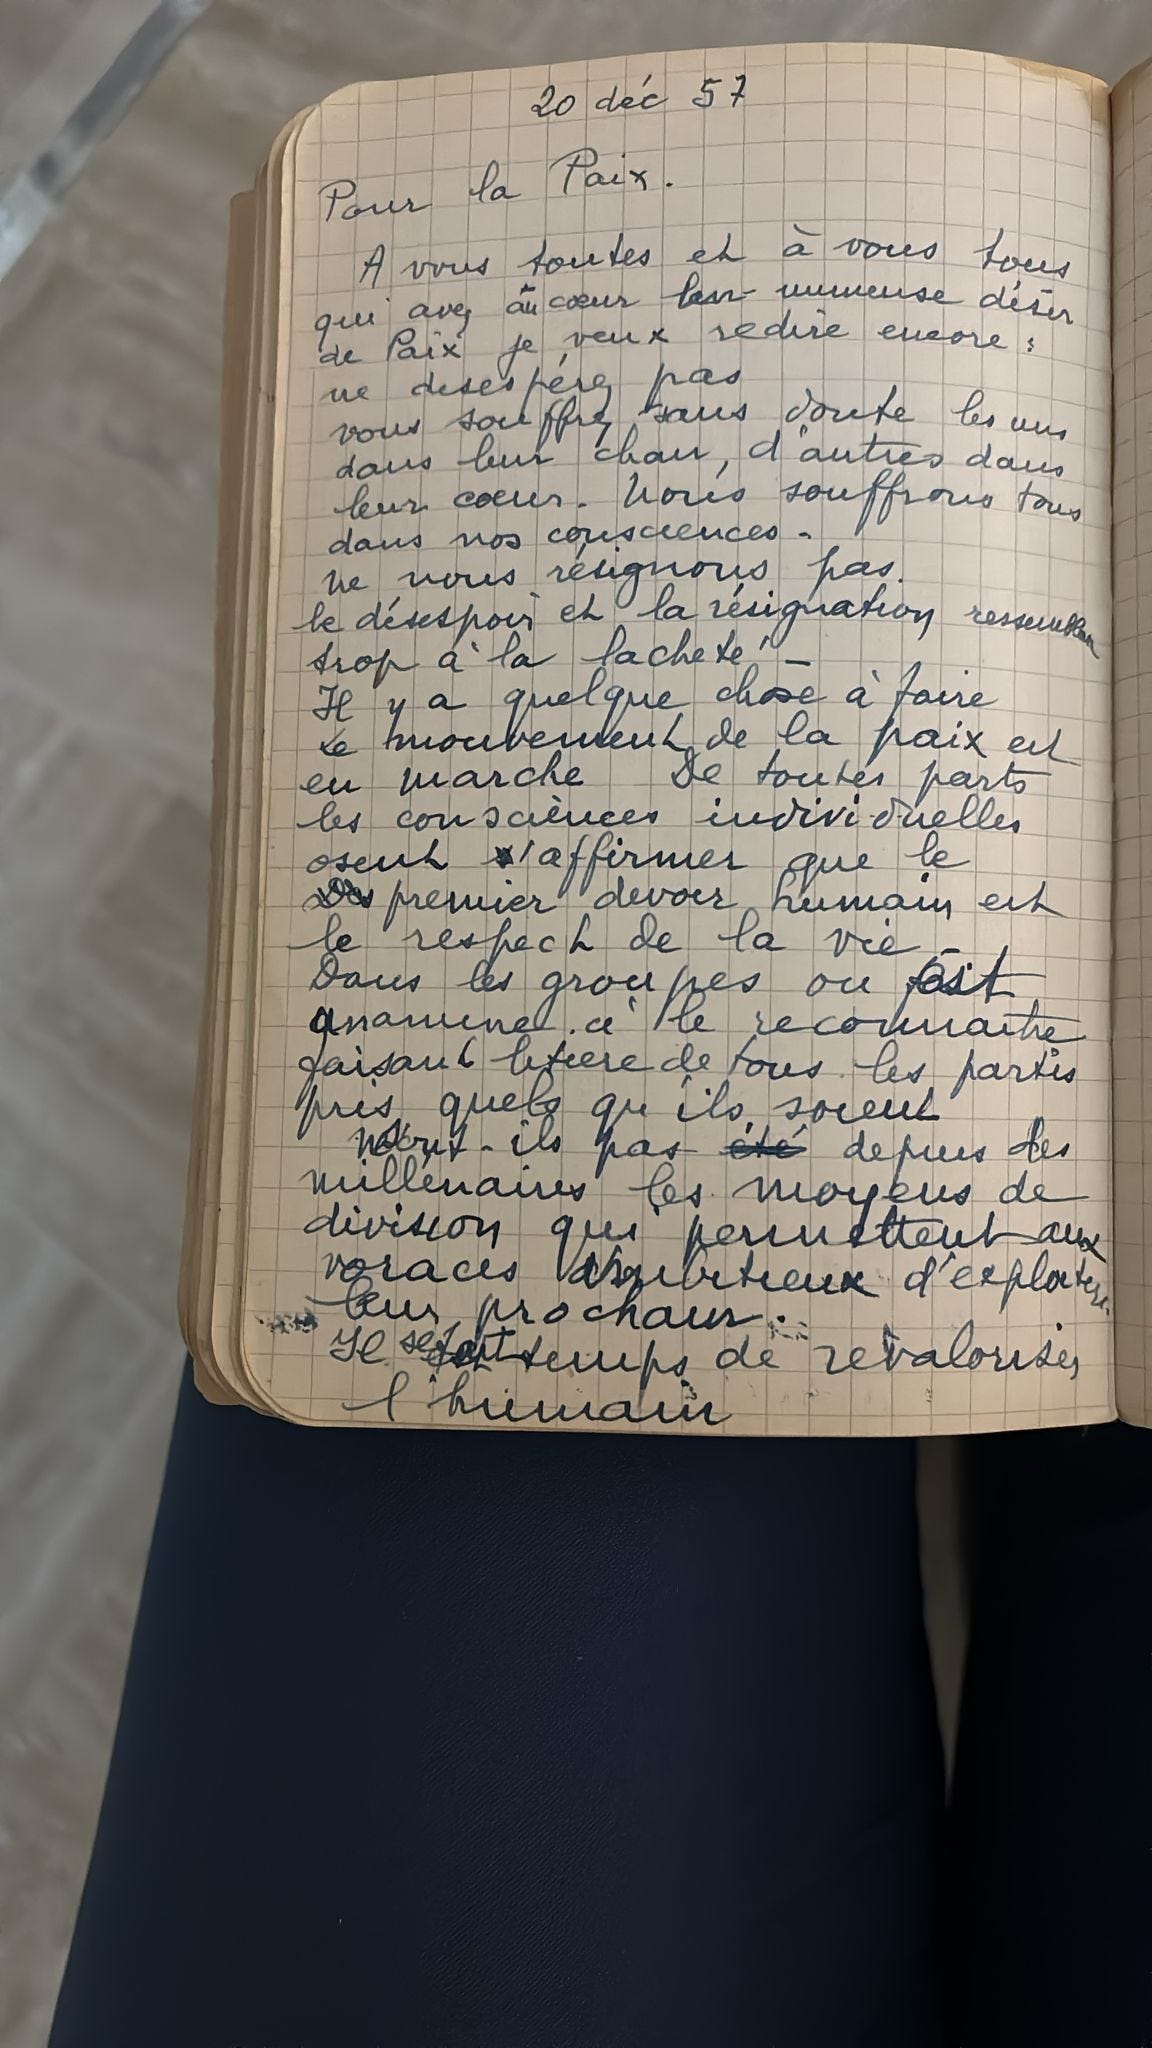 20 déc 57
Pour la Paix.
A vous toutes et à vous tous
qui avez au cœur immense désir
de Paix je veux redire encore :
ne desespérez pas
vous souffrez sans doute les uns
dans leur chair, d'autres dans
leur cœur. Nous souffrons tous
dans nos consciences.
ne nous résignons pas.
le désespoir et la résignation ressemblent
trop à la lacheté -
Il y a quelque chose à faire
Le mouvement de la paix est
en marche De toutes parts
les consciences individuelles
osent s'affirmer que le
premier devoir humain est
le respect de la vie -
Dans les groupes on
à le reconnaitre
faisant litiere de tous les partis
pris quels qu'ils soient
Ne sont-ils pas été depuis des
millénaires les moyens de
division qui permettent aux
voraces ambitieux d'exploiter
leur prochain.
Il temps de revaloriser
l'humain